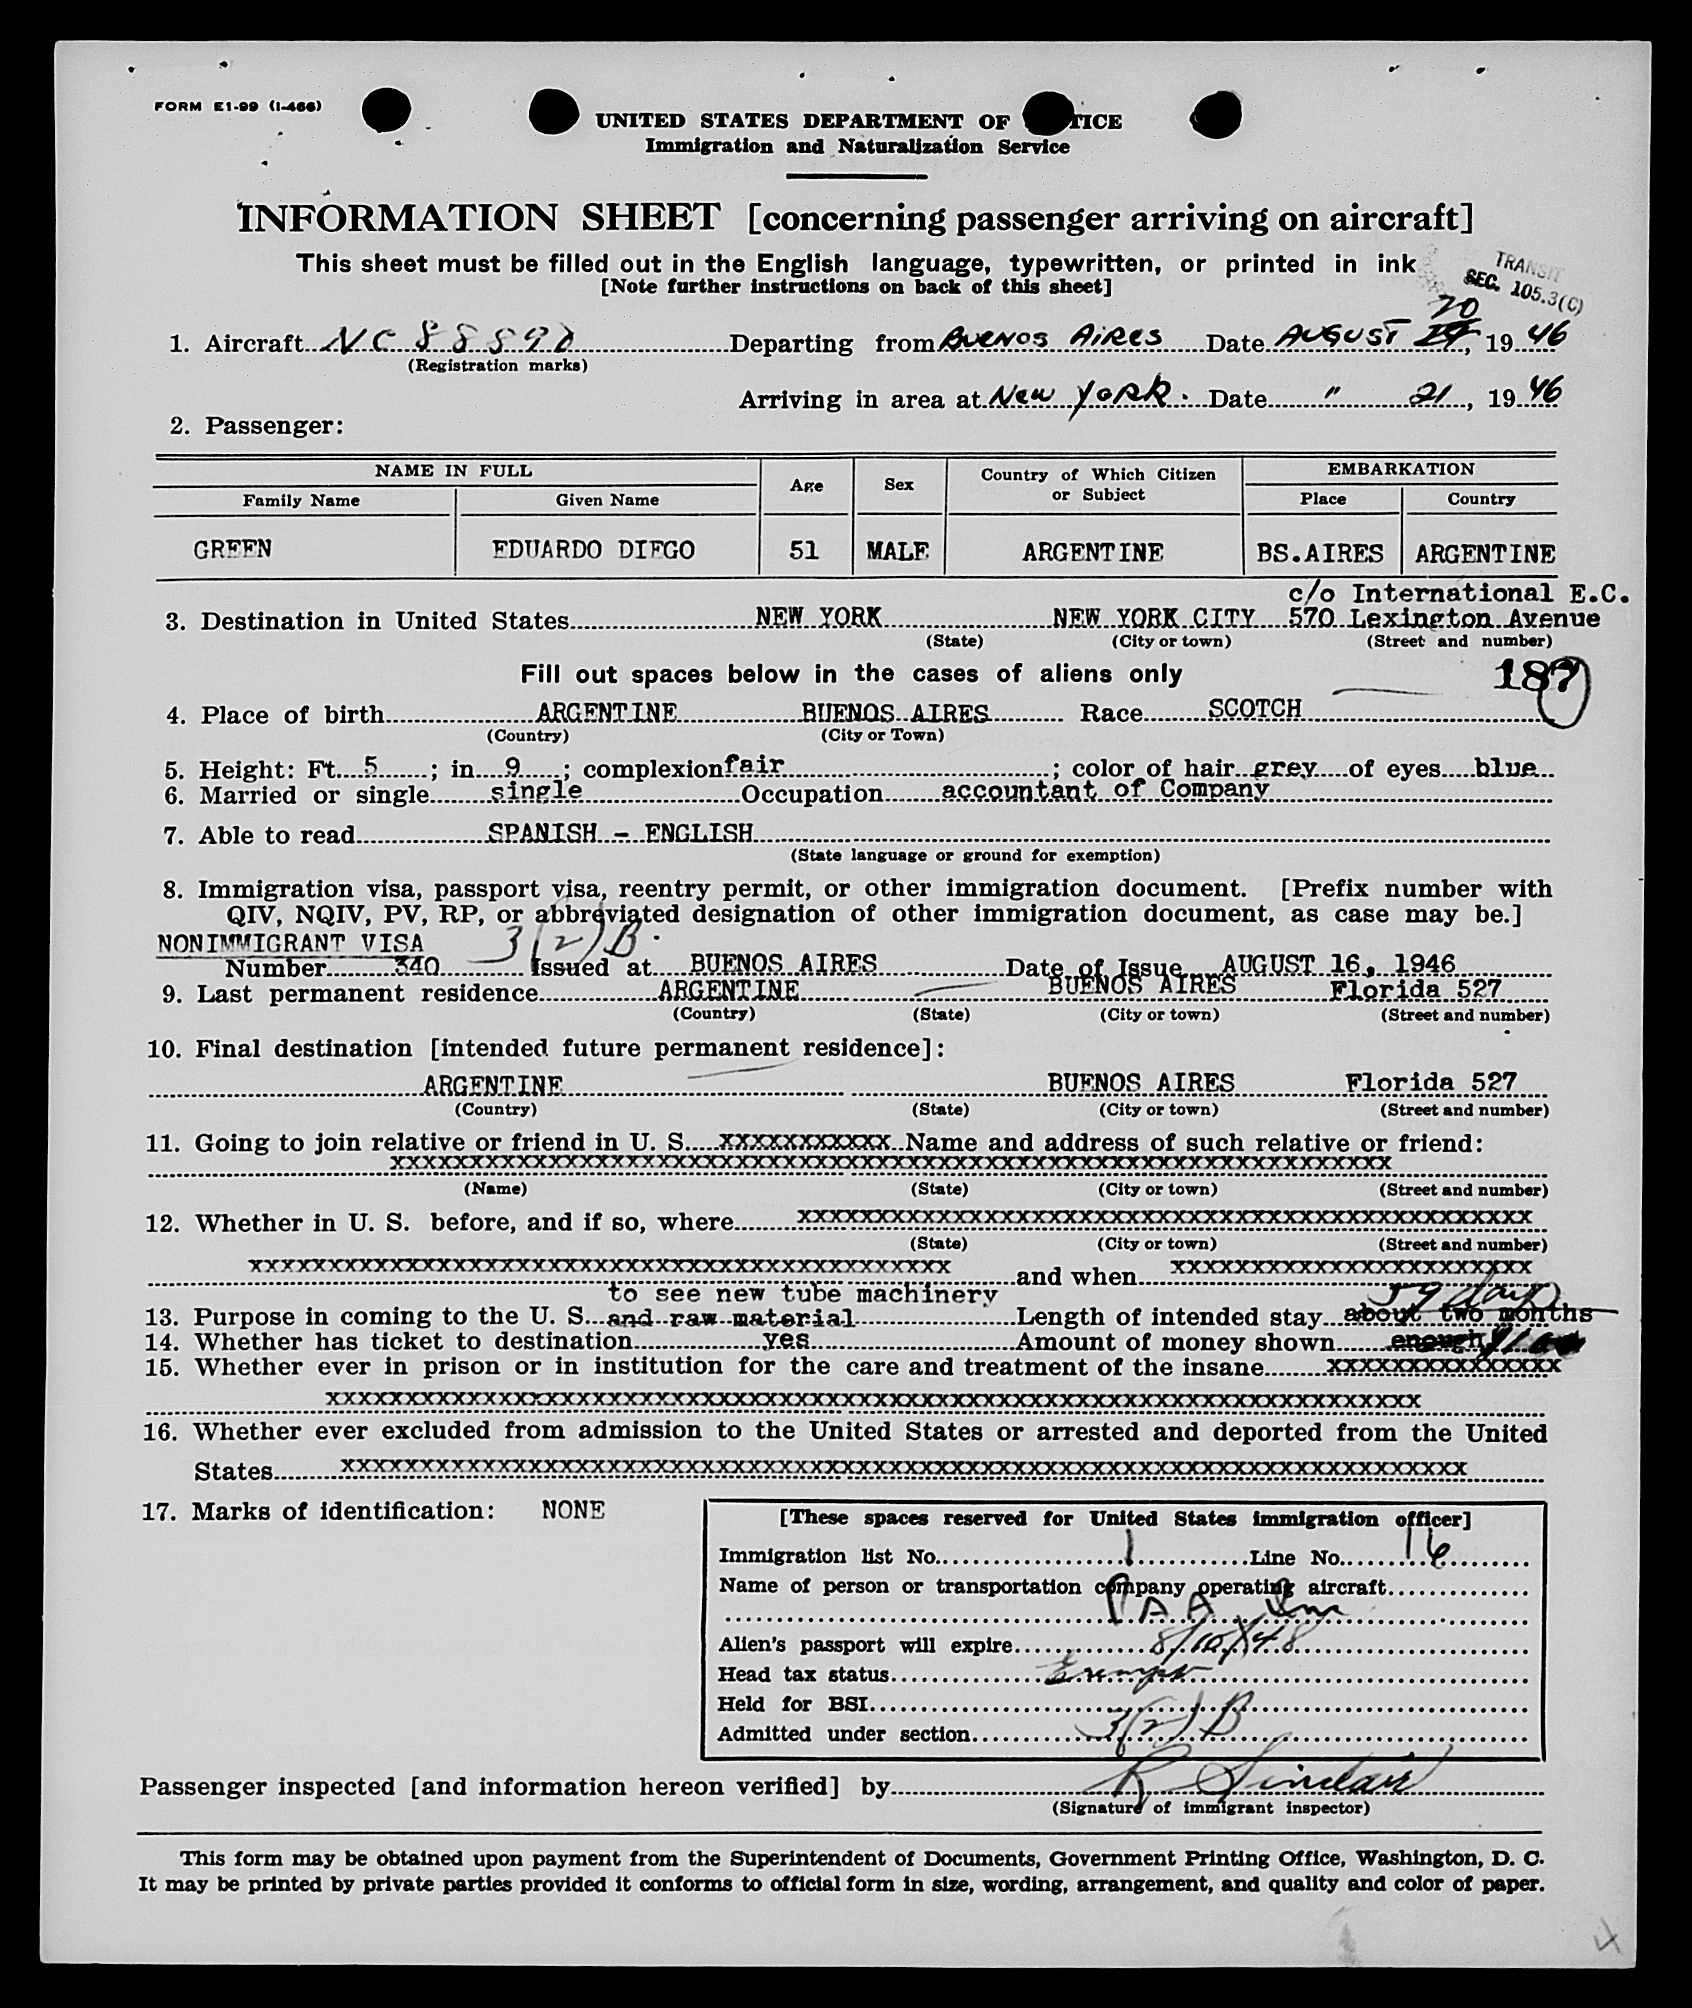 FORM E1-99 (I-466)
UNITED STATES DEPARTMENT OF TICE
Immigration and Naturalization Service
INFORMATION SHEET [concerning passenger arriving on aircraft]
This sheet must be filled out in the English language, typewritten, or printed in ink
[Note further instructions on back of this sheet]
TRANSIT
SEC. 105.3(C)
20
1. Aircraft NC 88890 Departing from Buenos Aires Date August, 1946
(Registration marks)
Arriving in area at New York. Date " 21, 1946
2. Passenger:
NAME IN FULL Age Sex Country of Which Citizen or Subject EMBARKATION
Family Name Given Name Place Country
GREEN EDUARDO DIEGO 51 MALE ARGENTINE BS.AIRES ARGENTINE
c/o International E.C.
3. Destination in United States NEW YORK NEW YORK CITY 570 Lexington Avenue
(State) (City or town) (Street and number)
Fill out spaces below in the cases of aliens only 187
4. Place of birth ARGENTINE BUENOS AIRES Race SCOTCH
(Country) (City or Town)
5. Height: Ft. 5; in. 9; complexion fair; color of hair grey of eyes blue
6. Married or single single Occupation accountant of Company
7. Able to read SPANISH - ENGLISH
(State language or ground for exemption)
8. Immigration visa, passport visa, reentry permit, or other immigration document. [Prefix number with
QIV, NQIV, PV, RP, or abbreviated designation of other immigration document, as case may be.]
NONIMMIGRANT VISA 3(2)B.
Number 340 Issued at BUENOS AIRES Date of Issue AUGUST 16, 1946
9. Last permanent residence ARGENTINE BUENOS AIRES Florida 527
(Country) (State) (City or town) (Street and number)
10. Final destination [intended future permanent residence]:
ARGENTINE BUENOS AIRES Florida 527
(Country) (State) (City or town) (Street and number)
11. Going to join relative or friend in U. S. xxxxxxxxxxx Name and address of such relative or friend:
xxxxxxxxxxxxxxxxxxxxxxxxxxxxxxxxxxxxxxxxxxxxxxxxxxxxxxxxxxxxxxxx
(Name) (State) (City or town) (Street and number)
12. Whether in U. S. before, and if so, where xxxxxxxxxxxxxxxxxxxxxxxxxxxxxxxxxxxxxxxxxxxxxxx
(State) (City or town) (Street and number)
xxxxxxxxxxxxxxxxxxxxxxxxxxxxxxxxxxxxxxxxxxxxx and when xxxxxxxxxxxxxxxxxxxxxxx
to see new tube machinery 59 days
13. Purpose in coming to the U. S. and raw material Length of intended stay about two months
14. Whether has ticket to destination yes Amount of money shown enough
15. Whether ever in prison or in institution for the care and treatment of the insane xxxxxxxxxxxxxxx
xxxxxxxxxxxxxxxxxxxxxxxxxxxxxxxxxxxxxxxxxxxxxxxxxxxxxxxxxxxxxxxxxxxxxx
16. Whether ever excluded from admission to the United States or arrested and deported from the United
States xxxxxxxxxxxxxxxxxxxxxxxxxxxxxxxxxxxxxxxxxxxxxxxxxxxxxxxxxxxxxxxxxxxxxxxx
17. Marks of identification: NONE
[These spaces reserved for United States immigration officer]
Immigration list No. 1 Line No. 16
Name of person or transportation company operating aircraft
PAA
Alien's passport will expire 8/10/48
Head tax status Exempt
Held for BSI
Admitted under section 3(2)B
Passenger inspected [and information hereon verified] by R Sinclair
(Signature of immigrant inspector)
This form may be obtained upon payment from the Superintendent of Documents, Government Printing Office, Washington, D. C.
It may be printed by private parties provided it conforms to official form in size, wording, arrangement, and quality and color of paper.
4